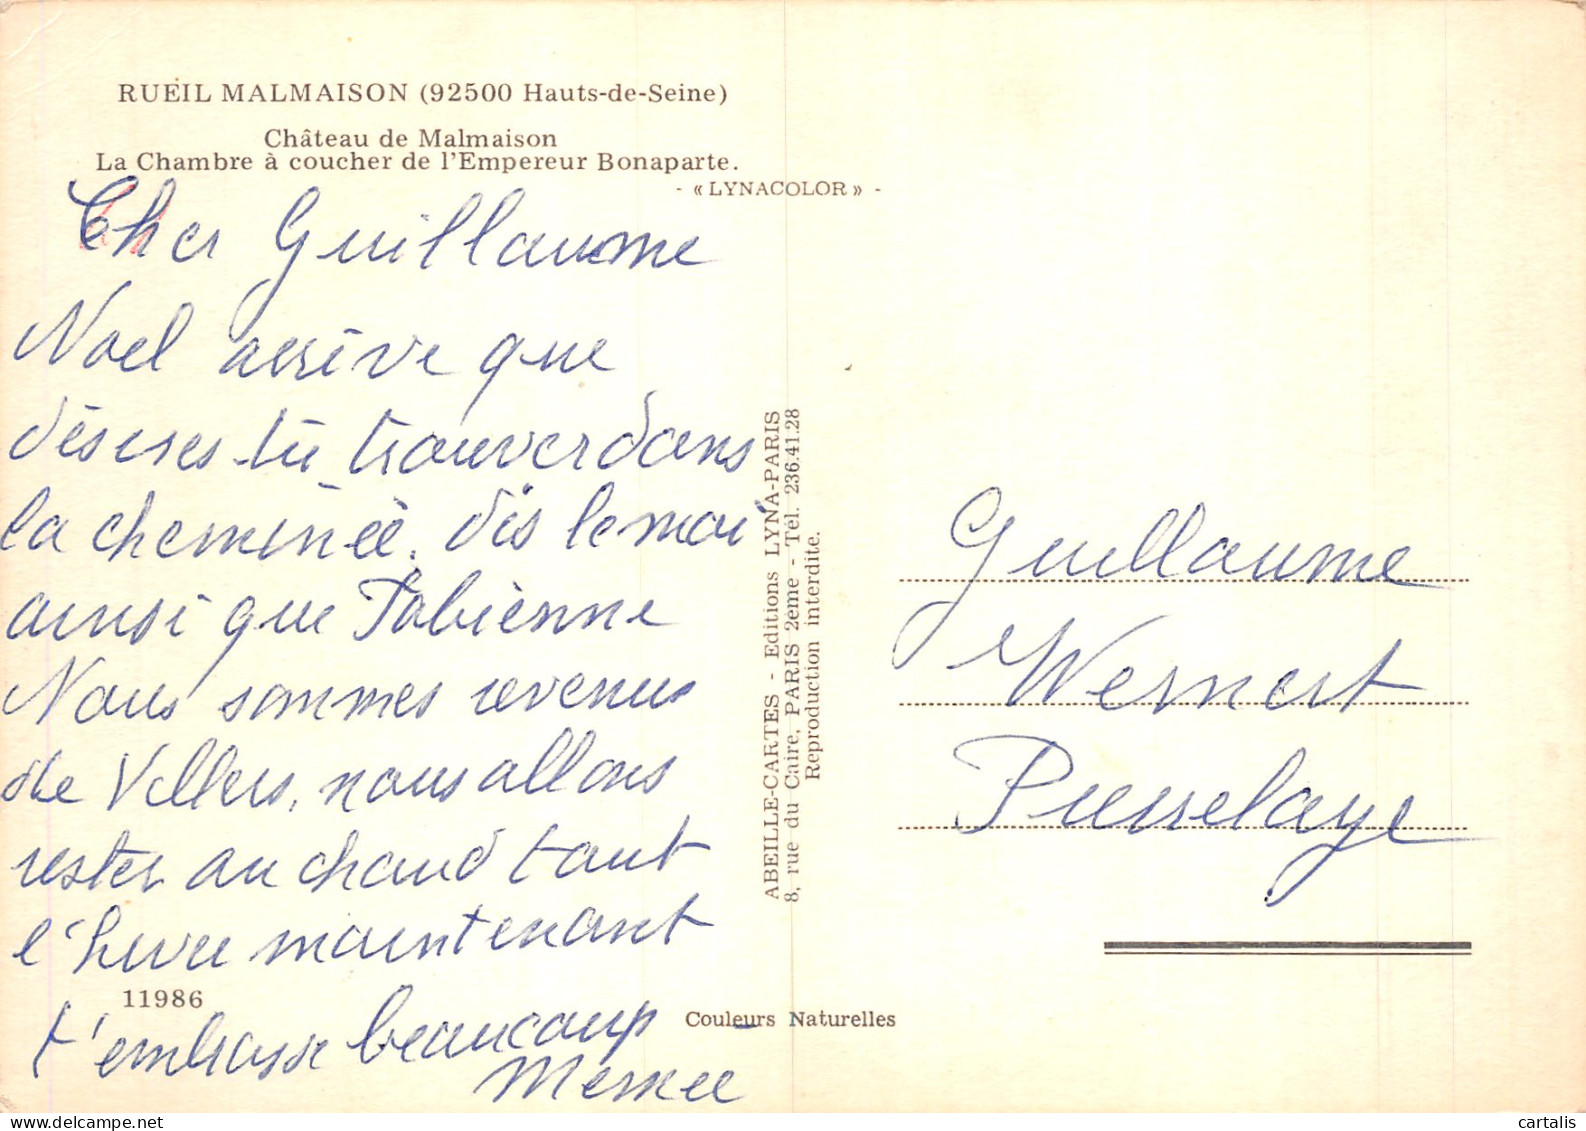 RUEIL MALMAISON (92500 Hauts-de-Seine)
Château de Malmaison
La Chambre à coucher de l'Empereur Bonaparte.
- « LYNACOLOR » -
Cher Guillaume
Noel arrive que
désires tu trouver dans
la cheminée. dis le moi
ainsi que Fabienne
Nous sommes revenus
de Villers, nous allons
rester au chaud tout
l'hiver maintenant
t'embrasse beaucoup
11986
ABEILLE-CARTES - Editions LYNA-PARIS
8, rue du Caire, PARIS 2ème - Tél. 236.41.28
Reproduction interdite.
Couleurs Naturelles
Guillaume
Wernert
Puiselaye
cartalis